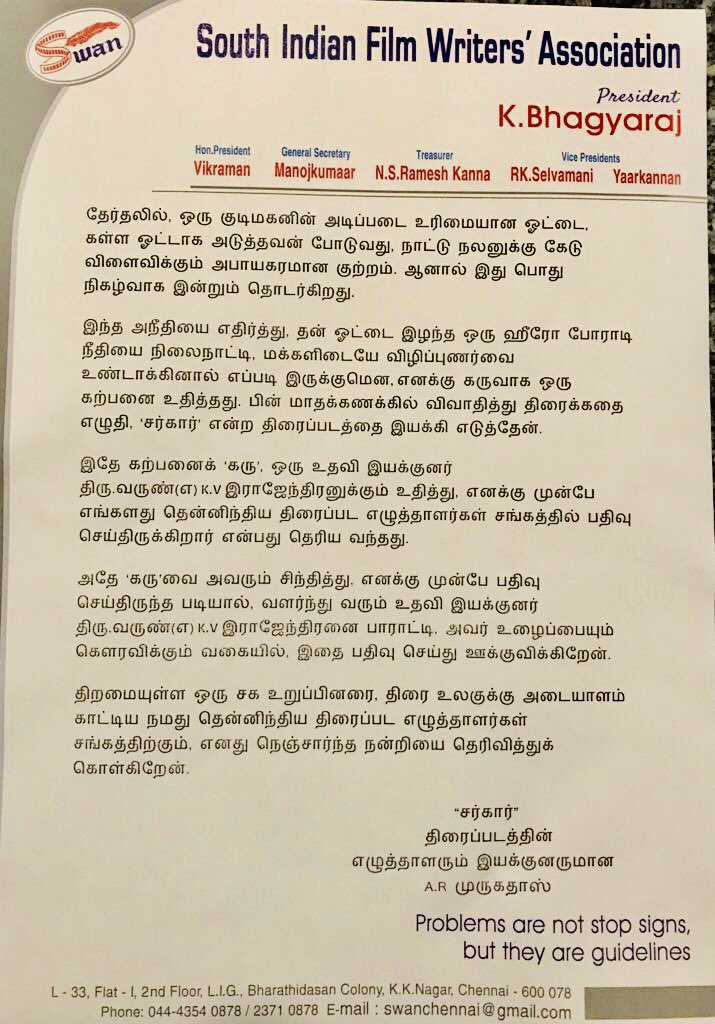 Swan
South Indian Film Writers' Association
President
K.Bhagyaraj
Hon.President General Secretary Treasurer Vice Presidents
Vikraman Manojkumaar N.S.Ramesh Kanna RK.Selvamani Yaarkannan
தேர்தலில், ஒரு குடிமகனின் அடிப்படை உரிமையான ஓட்டை,
கள்ள ஓட்டாக அடுத்தவன் போடுவது, நாட்டு நலனுக்கு கேடு
விளைவிக்கும் அபாயகரமான குற்றம். ஆனால் இது பொது
நிகழ்வாக இன்றும் தொடர்கிறது.
இந்த அநீதியை எதிர்த்து, தன் ஓட்டை இழந்த ஒரு ஹீரோ போராடி
நீதியை நிலைநாட்டி, மக்களிடையே விழிப்புணர்வை
உண்டாக்கினால் எப்படி இருக்குமென, எனக்கு கருவாக ஒரு
கற்பனை உதித்தது. பின் மாதக்கணக்கில் விவாதித்து திரைக்கதை
எழுதி, 'சர்கார்' என்ற திரைப்படத்தை இயக்கி எடுத்தேன்.
இதே கற்பனைக் 'கரு', ஒரு உதவி இயக்குனர்
திரு.வருண்(எ) K.V இராஜேந்திரனுக்கும் உதித்து, எனக்கு முன்பே
எங்களது தென்னிந்திய திரைப்பட எழுத்தாளர்கள் சங்கத்தில் பதிவு
செய்திருக்கிறார் என்பது தெரிய வந்தது.
அதே 'கரு'வை அவரும் சிந்தித்து, எனக்கு முன்பே பதிவு
செய்திருந்த படியால், வளர்ந்து வரும் உதவி இயக்குனர்
திரு.வருண்(எ) K.V இராஜேந்திரனை பாராட்டி, அவர் உழைப்பையும்
கௌரவிக்கும் வகையில், இதை பதிவு செய்து ஊக்குவிக்கிறேன்.
திறமையுள்ள ஒரு சக உறுப்பினரை, திரை உலகுக்கு அடையாளம்
காட்டிய நமது தென்னிந்திய திரைப்பட எழுத்தாளர்கள்
சங்கத்திற்கும், எனது நெஞ்சார்ந்த நன்றியை தெரிவித்துக்
கொள்கிறேன்.
"சர்கார்"
திரைப்படத்தின்
எழுத்தாளரும் இயக்குனருமான
A.R முருகதாஸ்
Problems are not stop signs,
but they are guidelines
L - 33, Flat - I, 2nd Floor, L.I.G., Bharathidasan Colony, K.K.Nagar, Chennai - 600 078
Phone: 044-4354 0878 / 2371 0878 E-mail : swanchennai@gmail.com